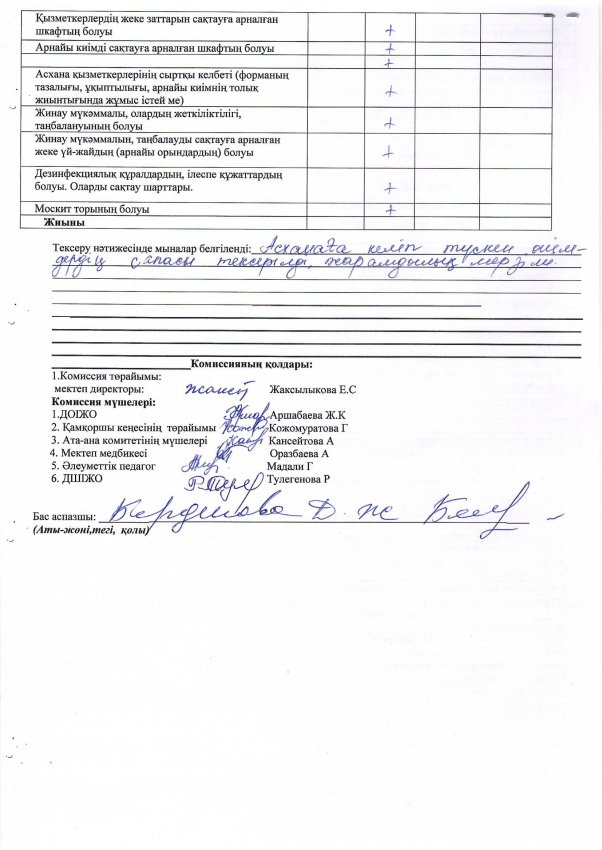 Қызметкерлердің жеке заттарын сақтауға арналған
шкафтың болуы +
Арнайы киімді сақтауға арналған шкафтың болуы +
+
Асхана қызметкерлерінің сыртқы келбеті (форманың
тазалығы, ұқыптылығы, арнайы киімнің толық
жиынтығында жұмыс істей ме) +
Жинау мүкәммалы, олардың жеткіліктілігі,
таңбалануының болуы +
Жинау мүкәммалын, таңбалауды сақтауға арналған
жеке үй-жайдың (арнайы орындардың) болуы +
Дезинфекциялық құралдардың, ілеспе құжаттардың
болуы. Оларды сақтау шарттары. +
Москит торының болуы +
Жиыны
Тексеру нәтижесінде мыналар белгіленді: Асханаға келіп түскен өнім-
дердің сапасы тексерілді, жарамдылық мерзімі.
Комиссияның қолдары:
1.Комиссия төрайымы:
мектеп директоры: Жаксылыкова Е.С
Комиссия мүшелері:
1.ДОІЖО Аршабаева Ж.К
2. Қамқоршы кеңесінің төрайымы Кожомуратова Г
3. Ата-ана комитетінің мүшелері Кансейтова А
4. Мектеп медбикесі Оразбаева А
5. Әлеуметтік педагог Мадали Г
6. ДШІЖО Тулегенова Р
Бас аспазшы: Д. Ж
(Аты-жөні,тегі, қолы)